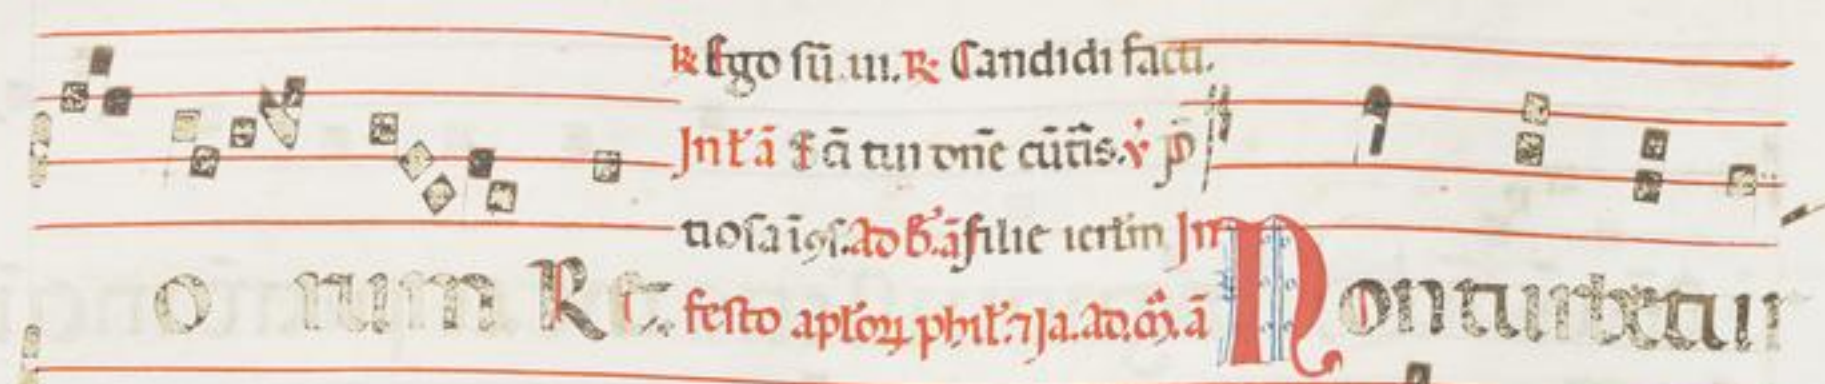 ℟ Ego sū .iii. ℟ Candidi facti.
In ł'ā  ā tui om̄e cūtis. ꝟ p̄
tiosa ī ꝯs. Ad b̄. ā filie ierlm̄ In
o rum. R &. festo aplōꝝ phil'. ⁊ Ja. ad. m̄. ā Non turbetur